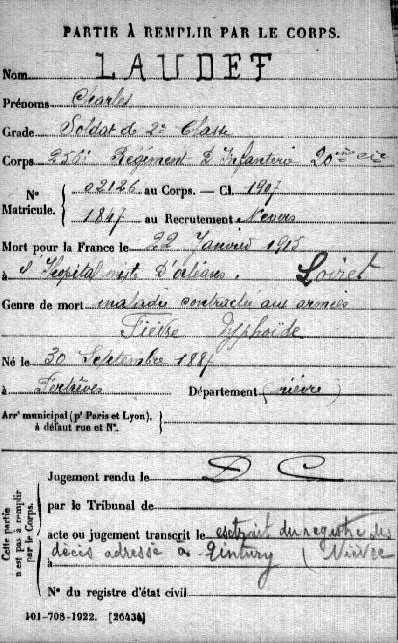 PARTIE À REMPLIR PAR LE CORPS.
Nom LAUDET
Prénoms Charles
Grade Soldat de 2e Classe
Corps 256e Régiment D'Infanterie 20ème Cie
N° Matricule. 02126 au Corps. — Cl. 1907
1847 au Recrutement Nevers
Mort pour la France le 22 Janvier 1915
à l'Hopital mixte D'orléans. Loiret
Genre de mort maladie contractée aux armées
Fièvre Typhoïde
Né le 30 Septembre 1887
à Tertrèves Département (nièvre)
Arrt municipal (pr Paris et Lyon),
à défaut rue et N°.
Cette partie n'est pas à remplir par le Corps.
Jugement rendu le D C
par le Tribunal de
acte ou jugement transcrit le extrait du registre des
décès adressé à Tintury (Nièvre
à
N° du registre d'état civil
101-708-1922. [26434]